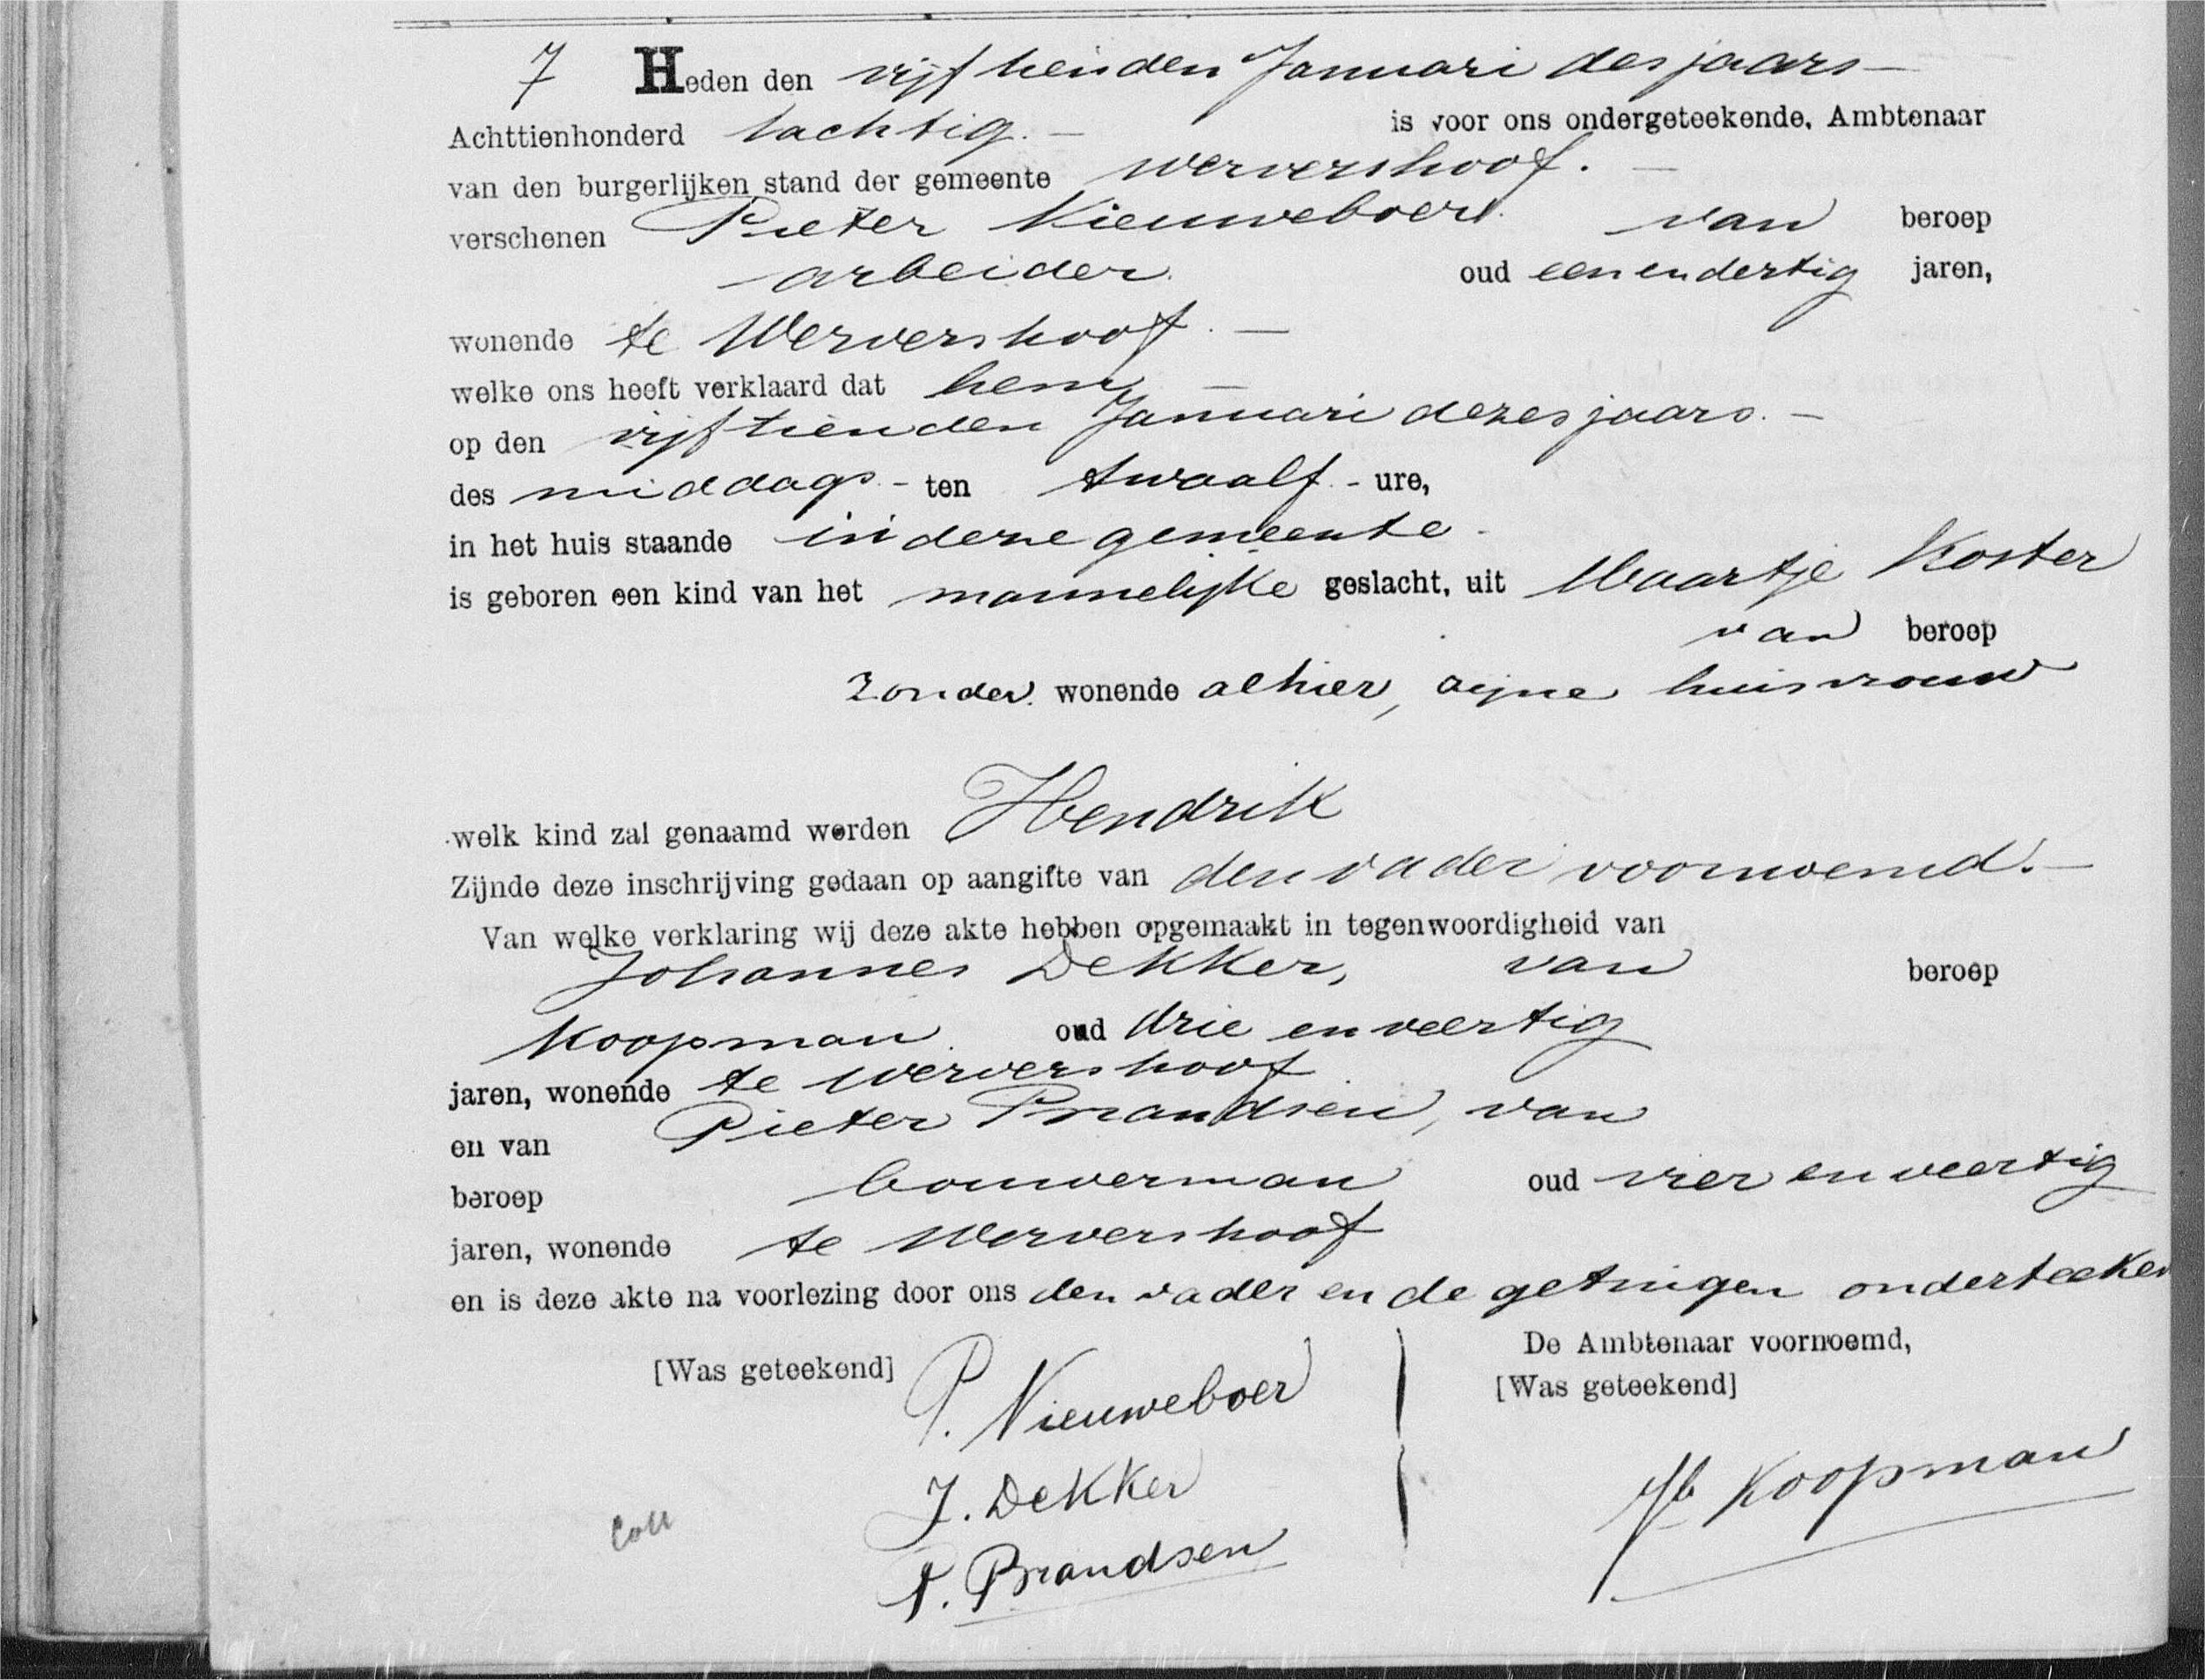 7 Heden den vijftienden Januari des jaars
Achttienhonderd tachtig. is voor ons ondergeteekende, Ambtenaar
van den burgerlijken stand der gemeente Wervershoof.
verschenen Pieter Nieuweboer van beroep
arbeider. oud eenendertig jaren,
wonende te Wervershoof.
welke ons heeft verklaard dat hem
op den vijftienden Januari dezes jaars.
des middags ten twaalf ure,
in het huis staande in deze gemeente
is geboren een kind van het mannelijke geslacht, uit Maartje Koster
van beroep
zonder. wonende alhier, zijne huisvrouw
welk kind zal genaamd worden Hendrik
Zijnde deze inschrijving gedaan op aangifte van den vader voornoemd.
Van welke verklaring wij deze akte hebben opgemaakt in tegenwoordigheid van
Johannes Dekker, van beroep
Koopman oud drie en veertig
jaren, wonende te Wervershoof
en van Pieter Brandsen, van
beroep bouwerman oud vier en veertig
jaren, wonende te Wervershoof
en is deze akte na voorlezing door ons den vader en de getuigen onderteeken
De Ambtenaar voornoemd,
[Was geteekend] P. Nieuweboer [Was geteekend]
J. Dekker Koopman
P. Brandsen
Coll